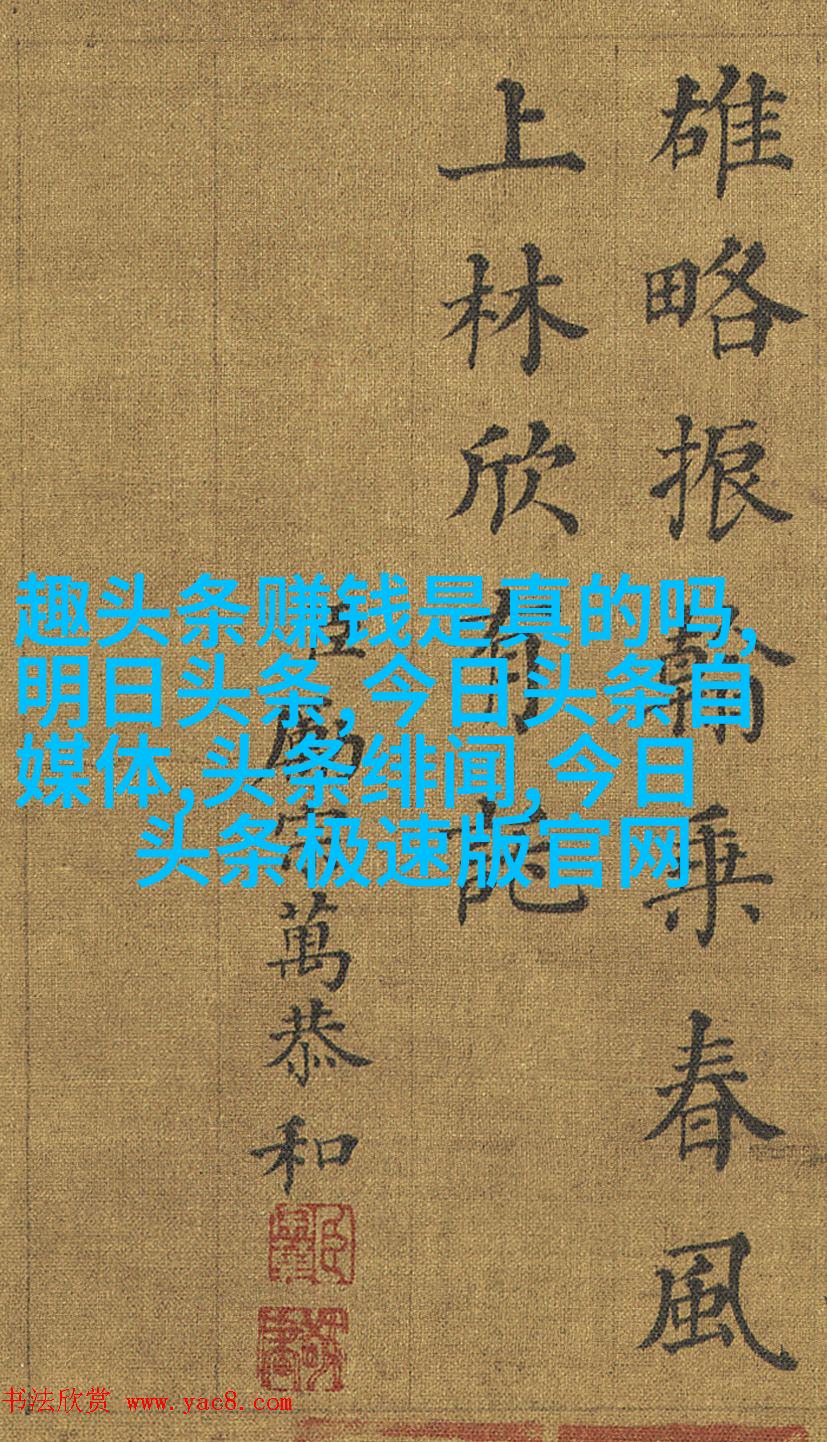 雄略振翰乘春風
上林欣有
臣勵宗萬恭和
趣头条赚钱是真的吗,
明日头条,今日头条自
媒体,头条绯闻,今日
头条极速版官网
书法欣赏 www.yac8.com